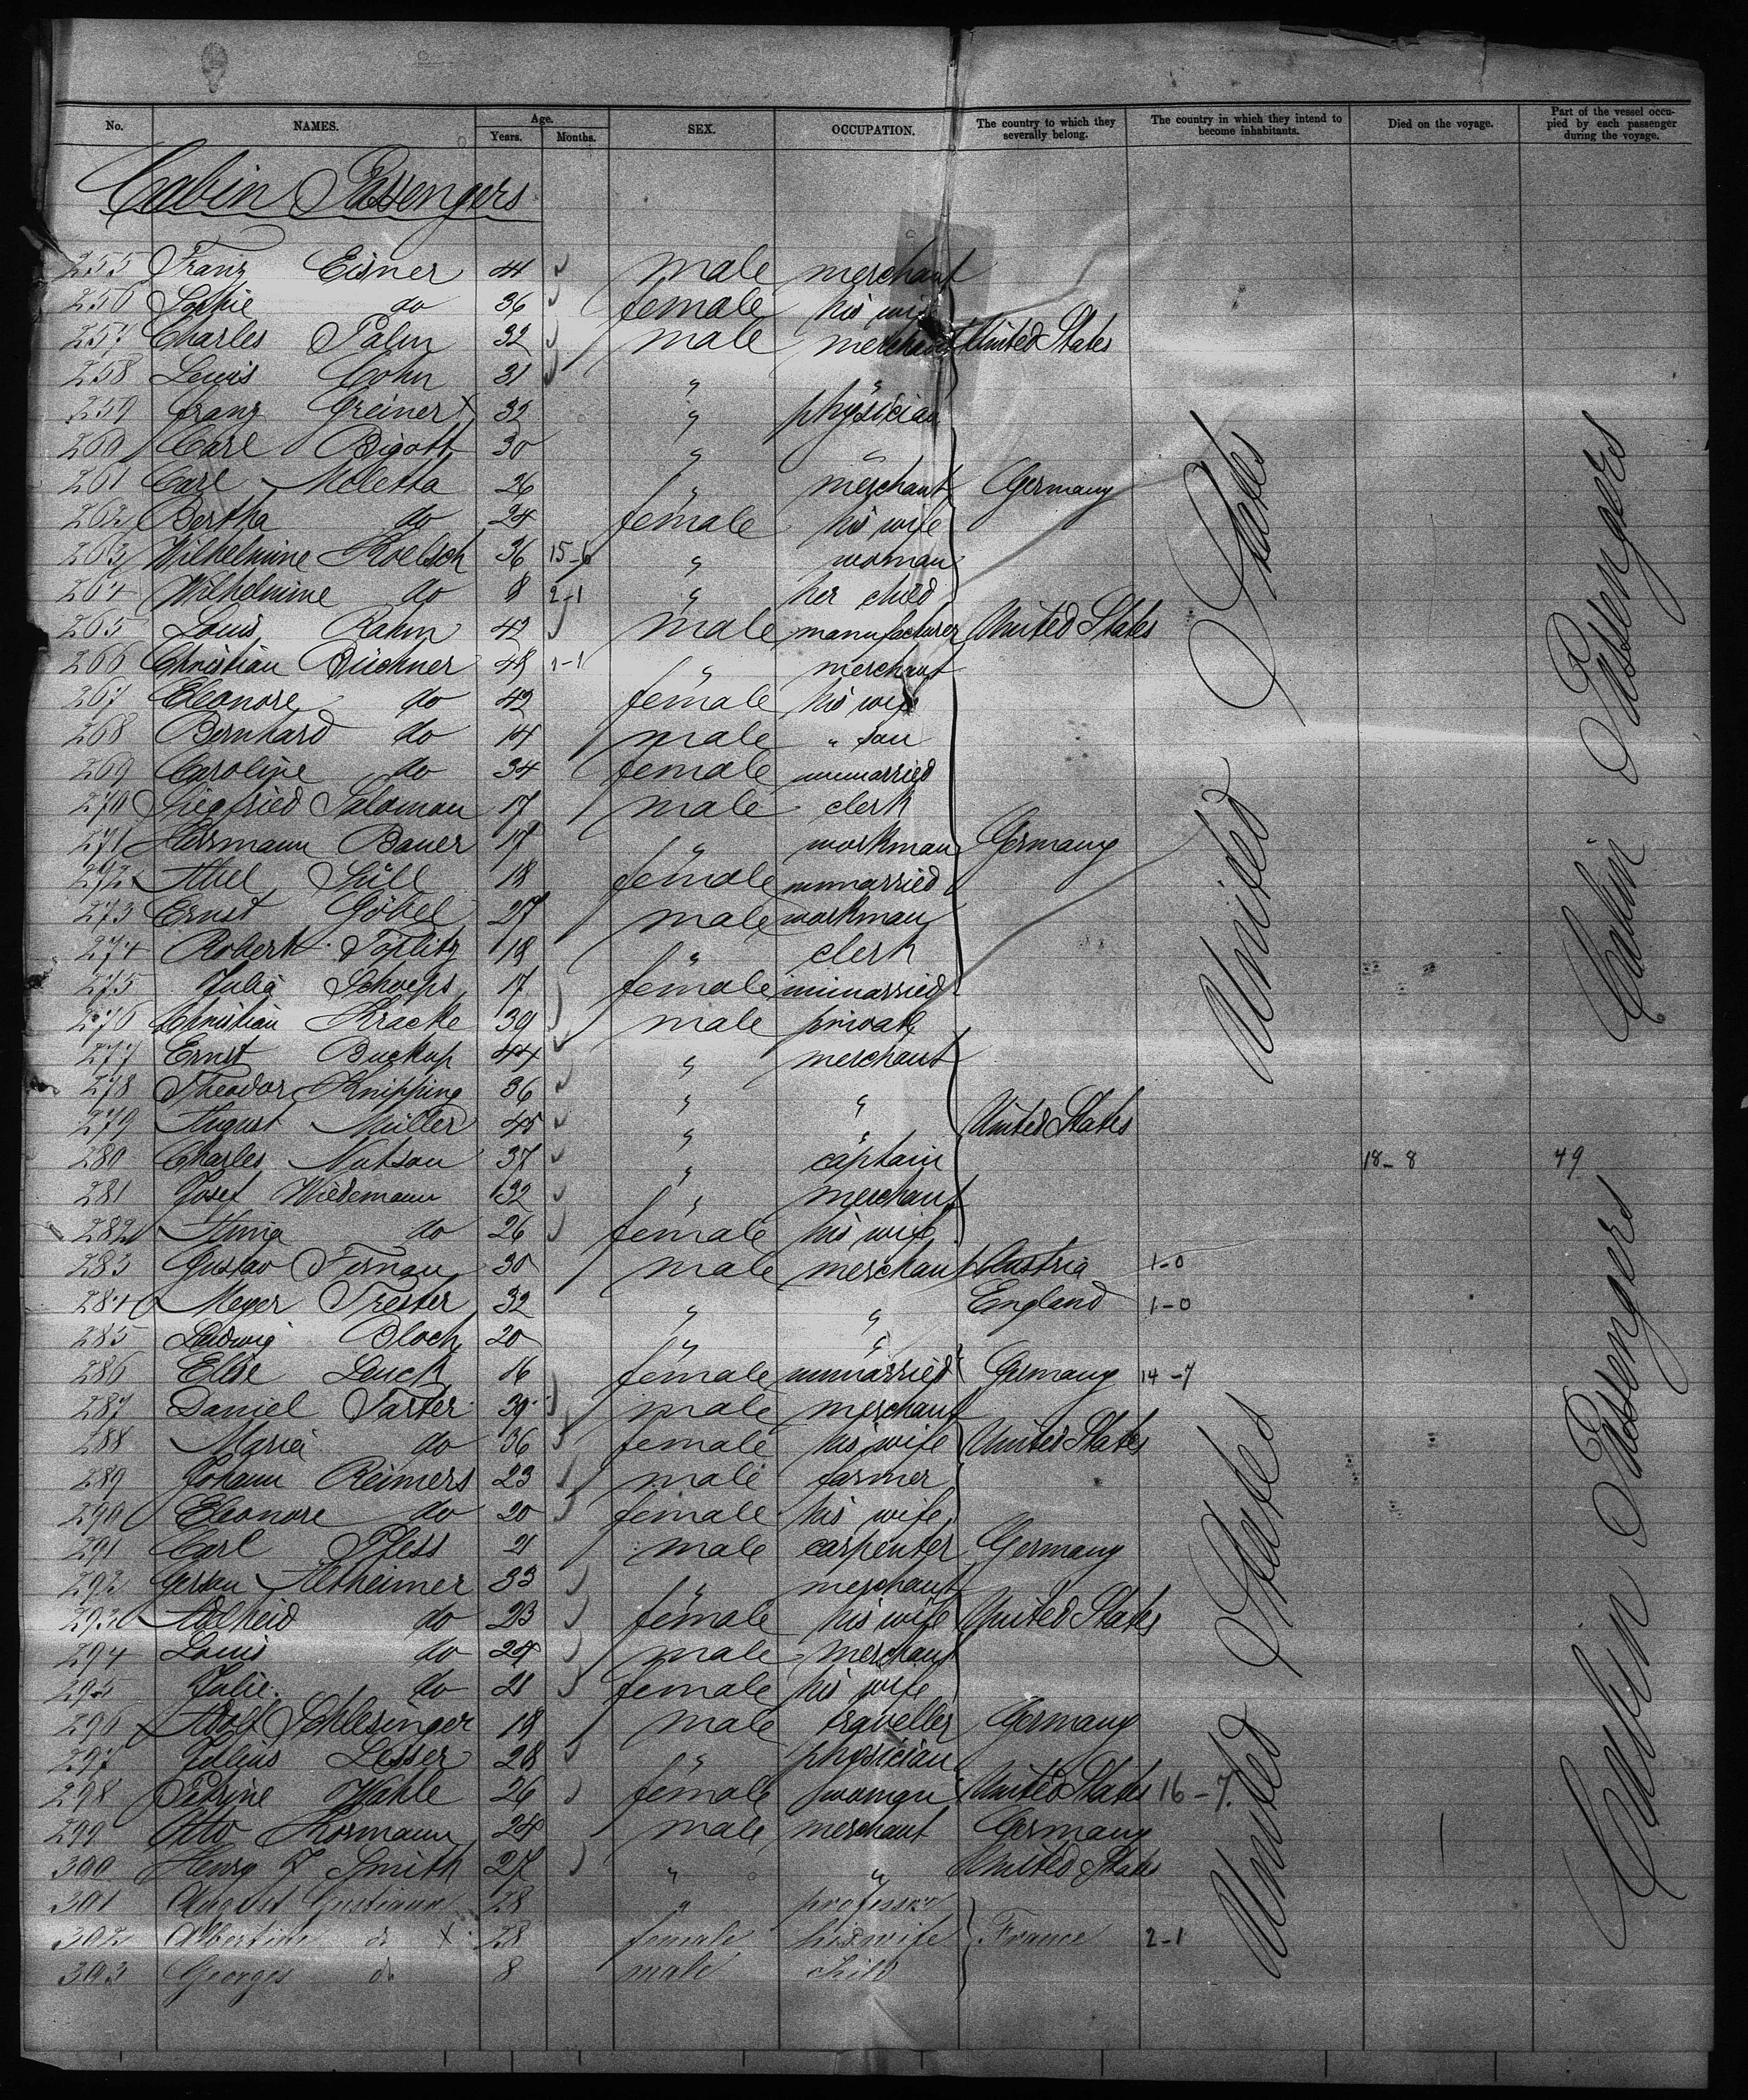 No. NAMES. Age. Years. Months. SEX. OCCUPATION. The country to which they severally belong. The country in which they intend to become inhabitants. Died on the voyage. Part of the vessel occupied by each passenger during the voyage.
Cabin Passengers
255 Franz Eisner 44 male merchant
256 Sophie do 36 female his wife
257 Charles Palm 32 male merchant United States
258 Lewis Cohn 31 " "
259 Franz Greiner x 32 " physician
260 Carl Bigott 30 " "
261 Carl Moletta 26 " merchant Germany
262 Bertha do 24 female his wife
263 Wilhelmine Koelsch 36 15-6 " woman
264 Wilhelmine do 8 2-1 " her child
265 Louis Rahm 42 male manufacturer United States
266 Christian Büchner 48 1-1 " merchant
267 Eleonore do 42 female his wife
268 Bernhard do 14 male " son
269 Caroline do 34 female unmarried
270 Siegfried Salomon 17 male clerk
271 Hermann Bauer 17 " workman Germany
272 18 female unmarried
273 Ernst Göbel 27 male workman
274 Robert Töplitz 18 " clerk
275 Julia Schoeps 17 female unmarried
276 Christian Kracke 39 male private
277 Ernst Buckup 44 " merchant
278 Theodor Knipping 36 " "
279 August Müller 45 " " United States
280 Charles 37 " captain 18-8 49
281 Josef Wiedemann 32 " merchant
282 Anna do 26 female his wife
283 Gustav 30 male merchant Austria 1-0
284 Meyer Trester 32 " " England 1-0
285 Ludwig Bloch 20 " "
286 Elise Lauck 16 female unmarried Germany 14-7
287 Daniel 39 male merchant
288 Maria do 36 female his wife United States
289 Johann Reimers 23 male farmer
290 Eleonore do 20 female his wife
291 Carl Pfess 21 male carpenter Germany
292 Gerson Altheimer 33 " merchant
293 Adelheid do 23 female his wife United States
294 Louis do 24 male merchant
295 Julie do 21 female his wife
296 Adolf Schlesinger 18 male traveller Germany
297 Julius Lesser 28 " physician
298 Petrine Wahle 26 female woman United States 16-7
299 Otto Kormann 24 male merchant Germany
300 Henry F Smith 27 " " United States
301 August 28 " professor
302 Albertine do x 28 female his wife France 2-1
303 Georges do 8 male child
United States
United States
Cabin Passengers
Cabin Passengers